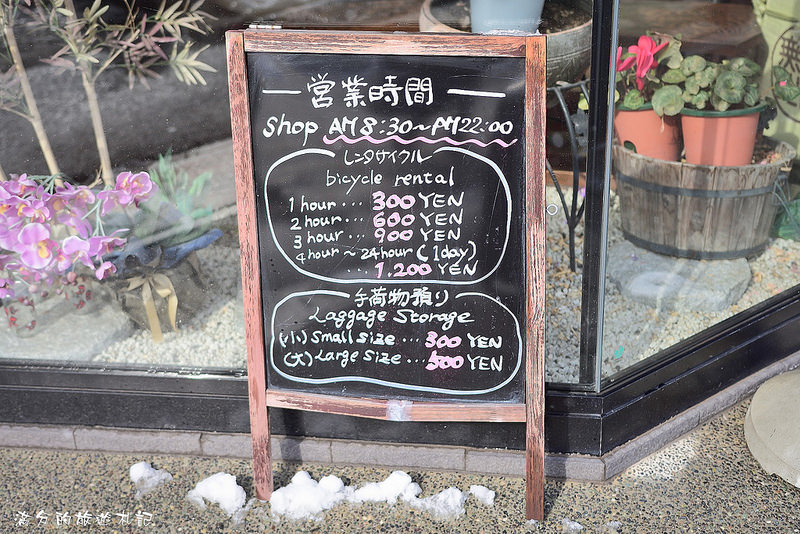 営業時間
Shop AM 8:30~PM22:00
レンタサイクル
bicycle rental
1 hour ... 300 YEN
2 hour ... 600 YEN
3 hour ... 900 YEN
4 hour ~ 24 hour (1day)
... 1,200 YEN
手荷物預り
Laggage Storage
(小) Small size ... 300 YEN
(大) Large size ... 500 YEN